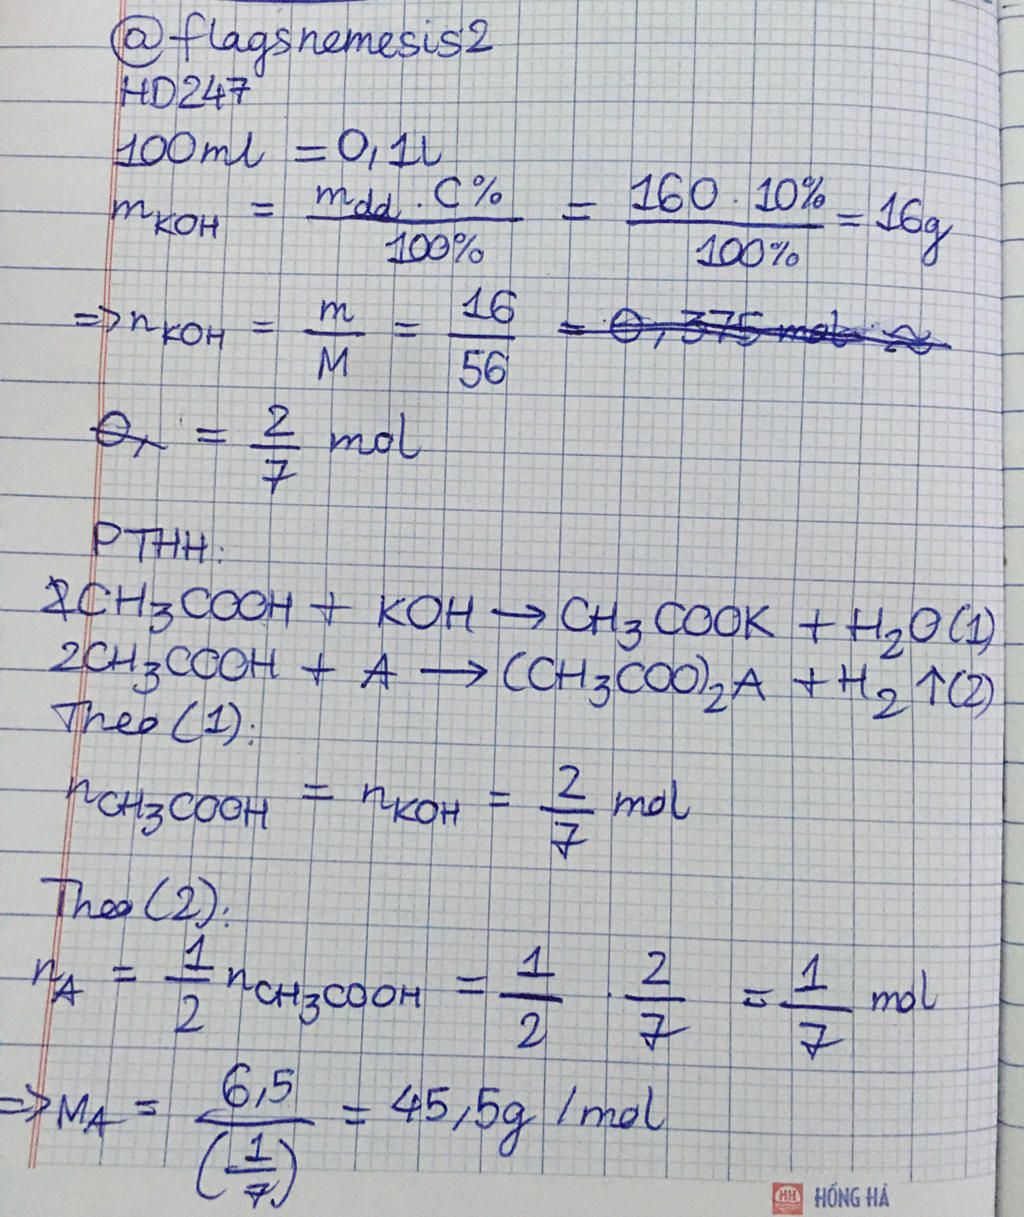 @flagsnemesis2
HD247
100ml = 0,1l
mKOH = mdd . C% / 100% = 160 . 10% / 100% = 16g
=> nKOH = m / M = 16 / 56 = 0,375 mol ≈
0, = 2/7 mol
PTHH:
CH3COOH + KOH → CH3COOK + H2O (1)
2CH3COOH + A → (CH3COO)2A + H2 ↑ (2)
Theo (1):
nCH3COOH = nKOH = 2/7 mol
Theo (2):
nA = 1/2 nCH3COOH = 1/2 . 2/7 = 1/7 mol
=> MA = 6,5 / (1/7) = 45,5g / mol
HH HỒNG HÀ